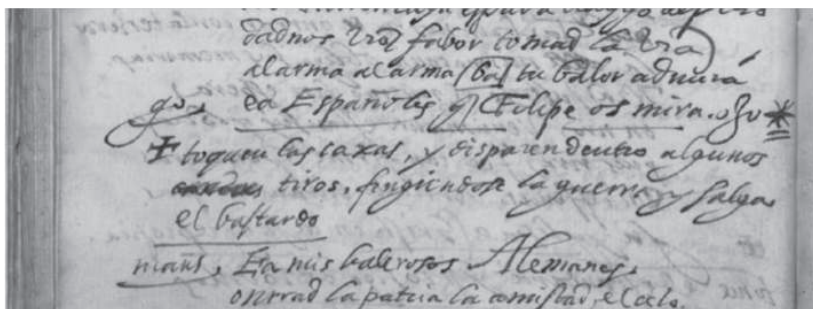 dadnos vro fabor tomad la vra
al arma al arma (ba) tu balor admira
go, ea Españoles q Felipe os mira.
toquen las caxas, y disparen dentro algunos
tiros, fingiendose la guerra, y salga
el bastardo
mans, Ea mis balerosos Alemanes,
onrrad la patria la amistad, el celo,